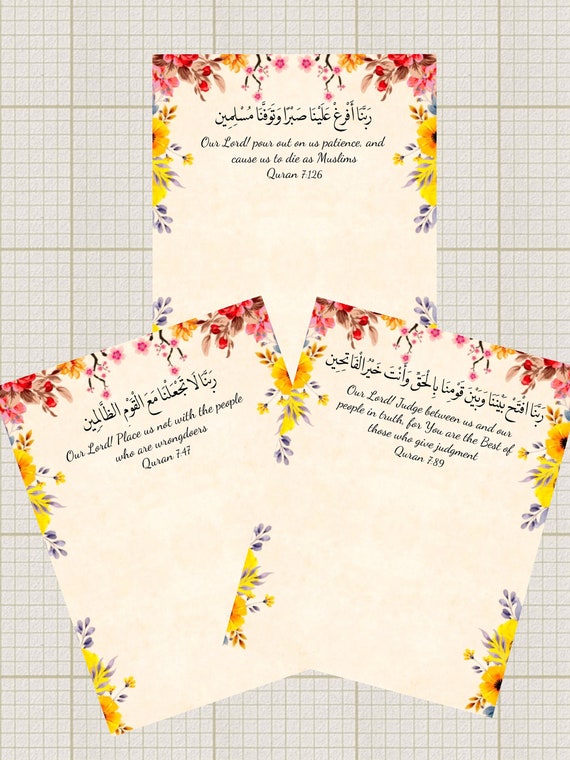 رَبَّنَا أَفْرِغْ عَلَيْنَا صَبْرًا وَتَوَفَّنَا مُسْلِمِين
Our Lord! pour out on us patience, and
cause us to die as Muslims
Quran 7:126
رَبَّنَا لَا تَجْعَلْنَا مَعَ الْقَوْمِ الظَّالِمِين
Our Lord! Place us not with the people
who are wrongdoers
Quran 7:47
رَبَّنَا افْتَحْ بَيْنَنَا وَبَيْنَ قَوْمِنَا بِالْحَقِّ وَأَنْتَ خَيْرُ الْفَاتِحِين
Our Lord! Judge between us and our
people in truth, for You are the Best of
those who give judgment
Quran 7:89